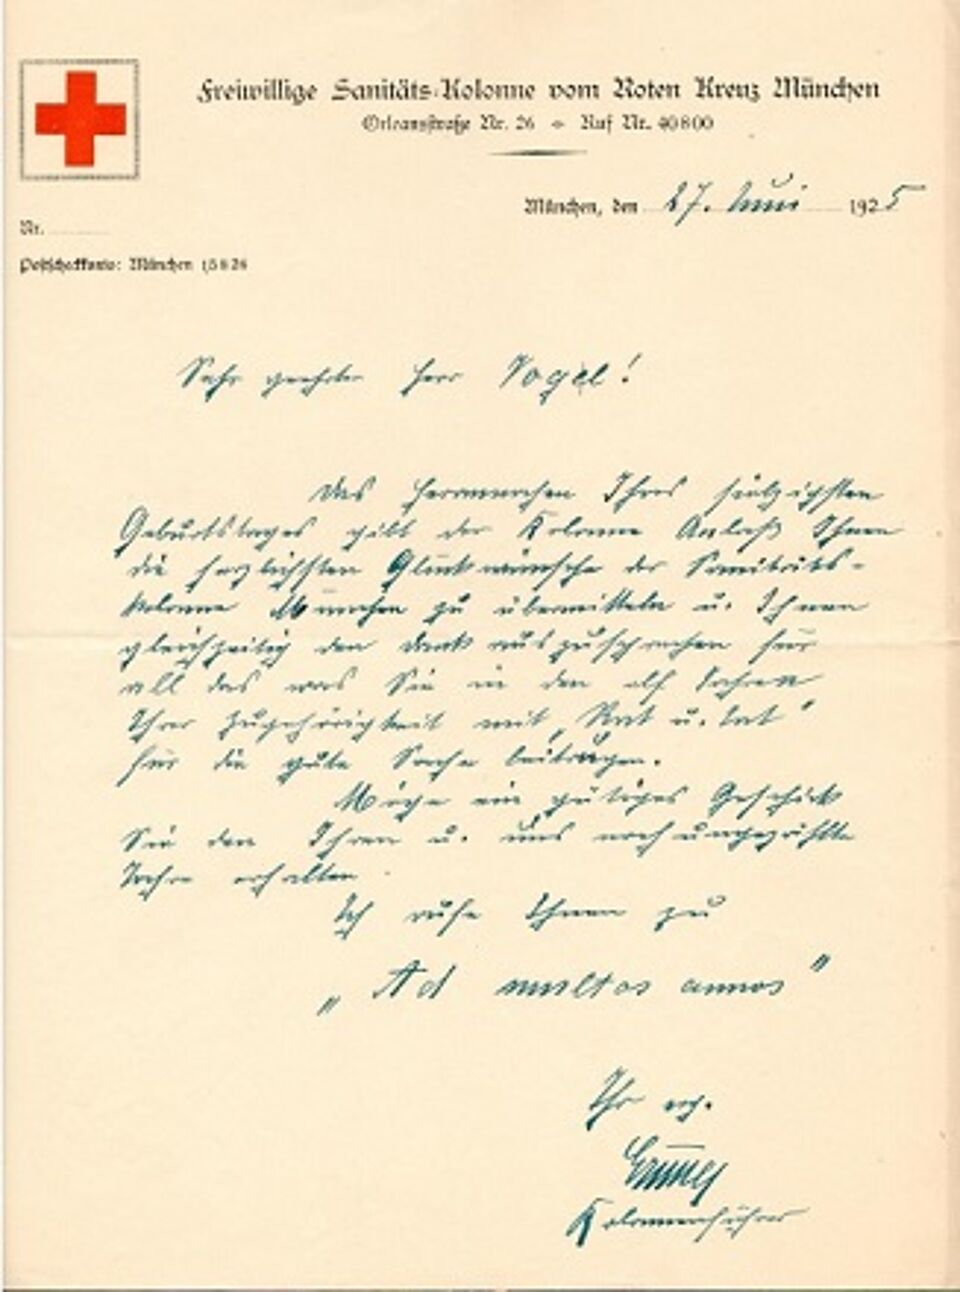 Freiwillige Sanitäts-Kolonne vom Roten Kreuz München
Orleansstraße Nr. 26 Ruf Nr. 40800
München, den 27. Juni 1925
Nr.
Postscheckkonto: München 15826
Sehr geehrter Herr Vogel!
Das Herannahen Ihres siebzigsten
Geburtstages gibt der Kolonne Anlaß Ihnen
die herzlichsten Glückwünsche der Sanitäts-
kolonne München zu übermitteln u. Ihnen
gleichzeitig den Dank auszusprechen für
all das was Sie in den elf Jahren
Ihrer Zugehörigkeit mit „Rat u. Tat"
für die gute Sache beitrugen.
Möge ein gütiges Geschick
Sie den Ihren u. uns noch ungezählte
Jahre erhalten.
Ich rufe Ihnen zu
„Ad multos annos"
Ihr erg.
Kolonnenführer